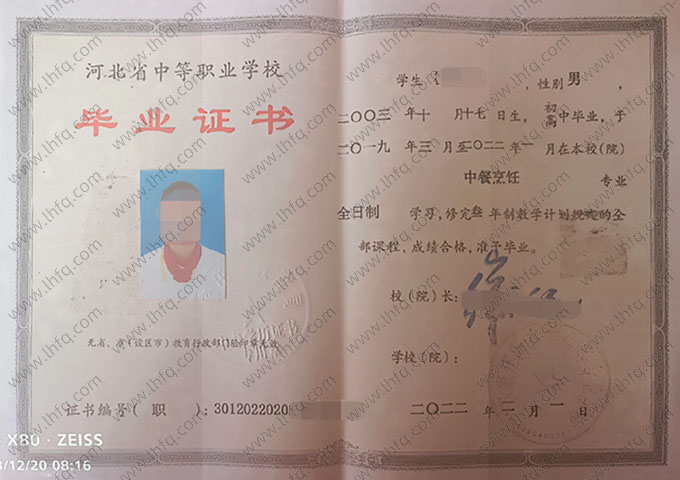 河北省中等职业学校
毕业证书
无省、市（设区市）教育行政部门验印章无效
证书编号（职）：3012022020
学生 ，性别 男，
二〇〇三年十月十七日生，初高中毕业，于
二〇一九年三月至二〇二二年一月在本校（院）
中餐烹饪 专业
全日制 学习，修完叁年制教学计划规定的全
部课程，成绩合格，准予毕业。
校（院）长：
学校（院）：
二〇二二年二月一日
X80 · ZEISS
/12/20 08:16
www.lhfq.com